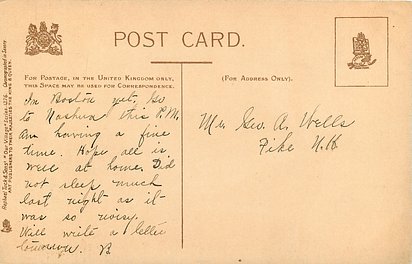 POST CARD.
FOR POSTAGE, IN THE UNITED KINGDOM ONLY,
THIS SPACE MAY BE USED FOR CORRESPONDENCE.
(FOR ADDRESS ONLY).
In Boston yet. Go
to Nashua this P.M.
Am having a fine
time. Hope all is
well at home. Did
not sleep much
last night as it
was so noisy.
Will write a letter
tomorrow. B
Geo. A. Wells
Pike N.H
Raphael Tuck & Sons'
ART PUBLISHERS TO THEIR MAJESTIES THE KING & QUEEN.